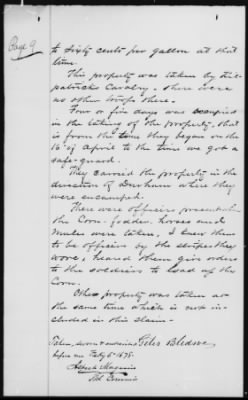 Page 9
to sixty cents per gallon at that
time.
This property was taken by Kil-
patrick Cavalry. there were
no other troops there.
Four or five days was occupied
in the taking of the property, that
is from the time they began on the
16" of April to the time we got a
safe-guard.
They carried the property in the
direction of Durham where they
were encamped.
There were officers present when
the Corn, fodder, horses and
mules were taken. I knew them
to be officers by the stripes they
wore, I heard them give orders
to the soldiers to load up the
Corn.
Other property was taken at
the same time which is not in-
cluded in this claim-
Taken, sworn &
Giles Bledsoe
before me Feb'y 6" 1878.